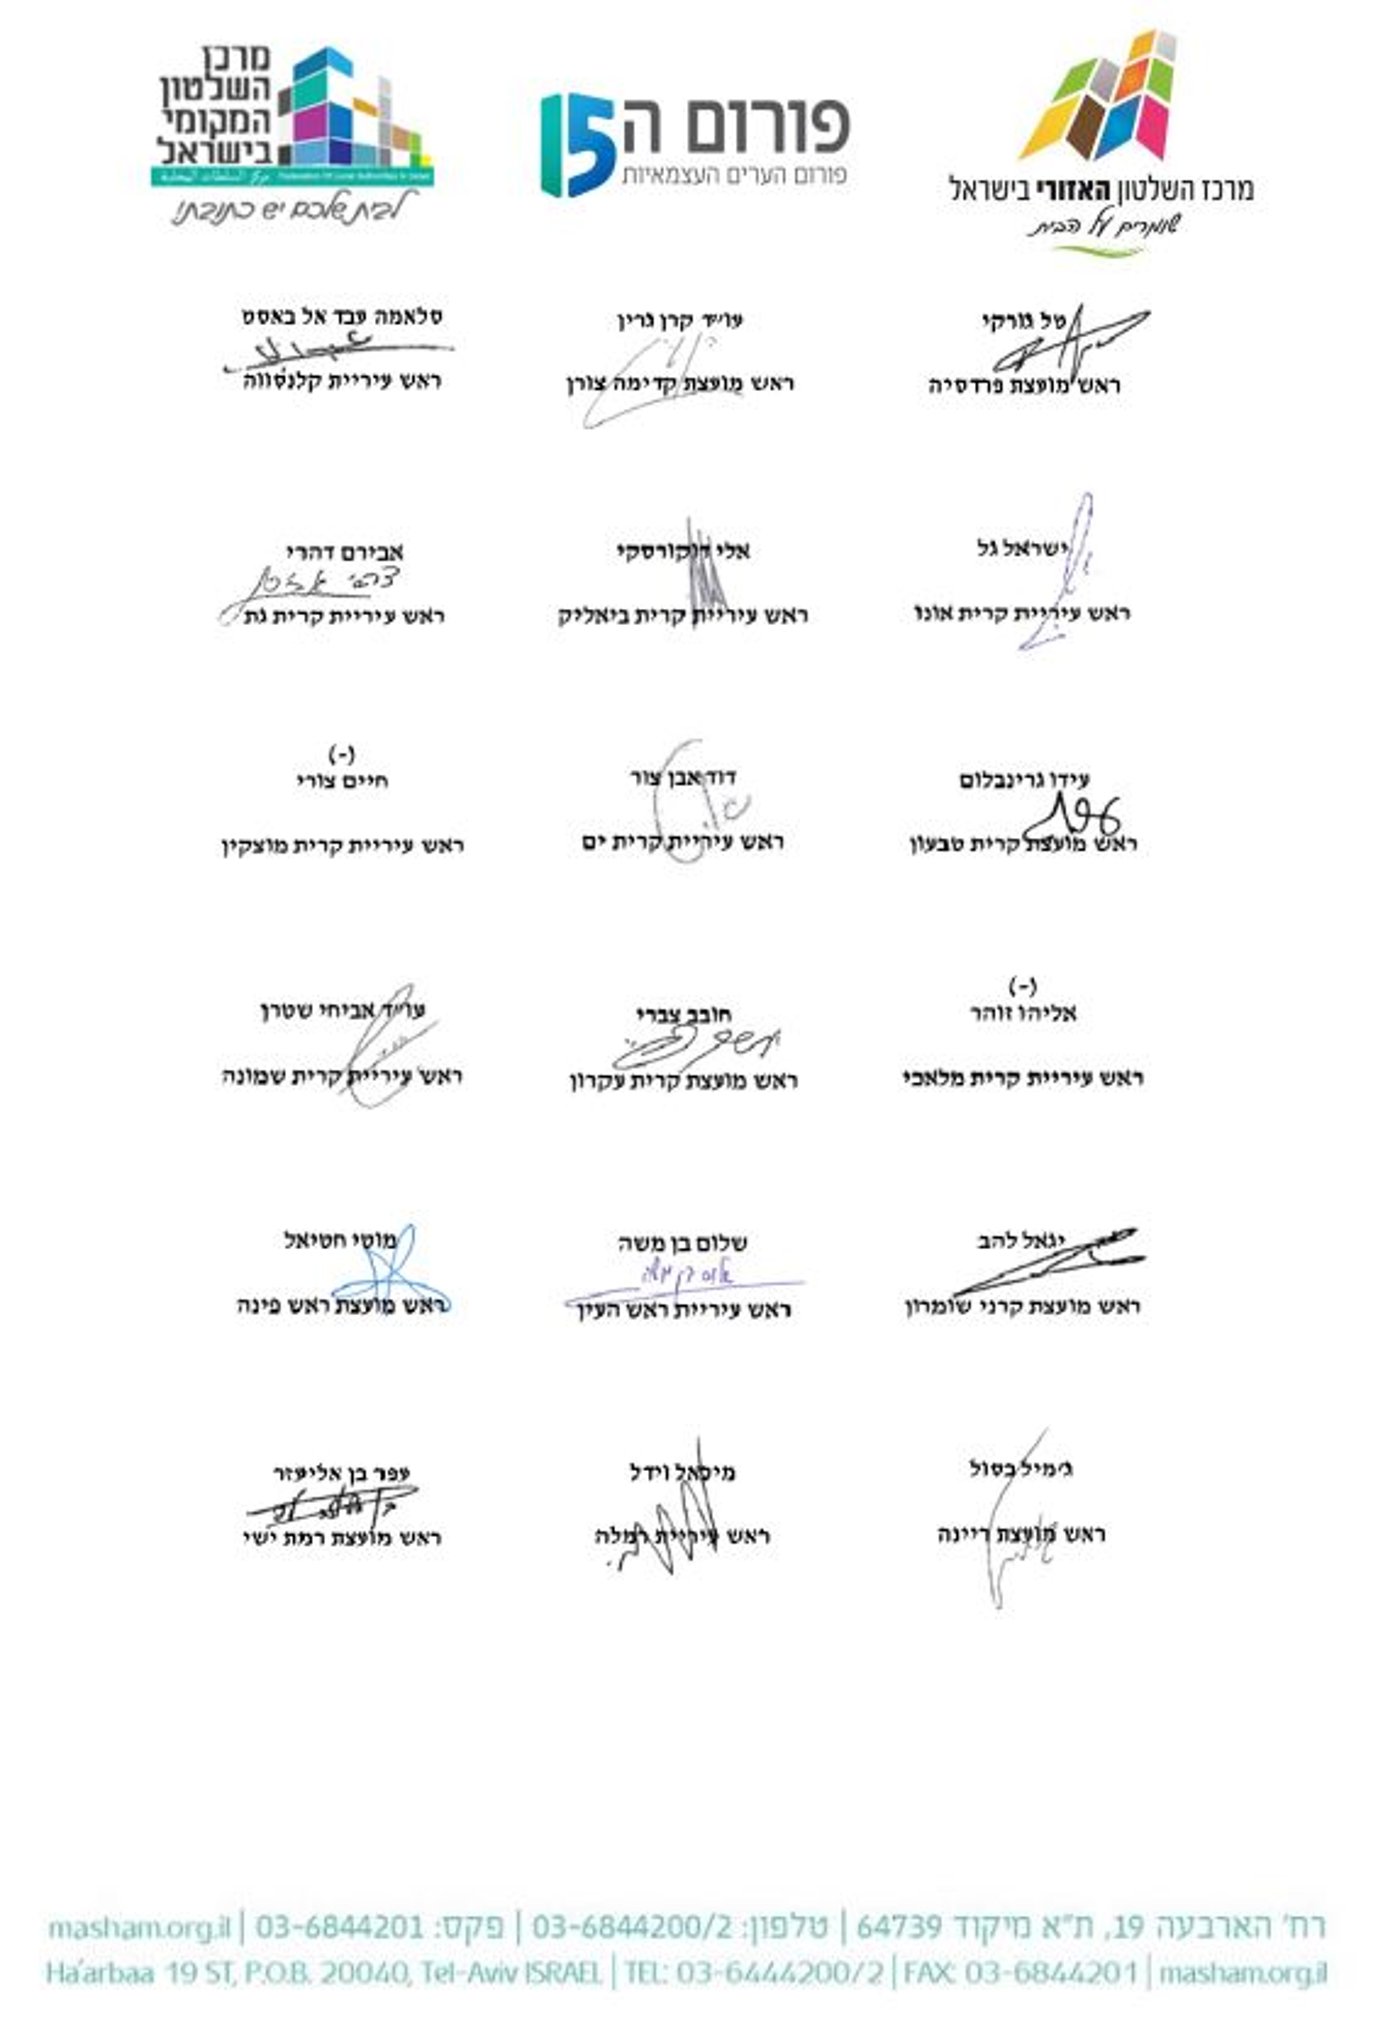 מרכז השלטון האזורי בישראל
שומרים על הבית
פורום ה15
פורום הערים העצמאיות
מרכז
השלטון
המקומי
בישראל
Federation Of Local Authorities In Israel
לבית שלכם יש כתובת!
טל גורקי
ראש מועצת פרדסיה
עו"ד קרן גרין
ראש מועצת קדימה צורן
סלאמה עבד אל באסט
ראש עיריית קלנסווה
ישראל גל
ראש עיריית קרית אונו
אלי דוקורסקי
ראש עיריית קרית ביאליק
אבירם דהרי
ראש עיריית קרית גת
עידו גרינבלום
ראש מועצת קרית טבעון
דוד אבן צור
ראש עיריית קרית ים
(-)
חיים צורי
ראש עיריית קרית מוצקין
(-)
אליהו זוהר
ראש עיריית קרית מלאכי
חובב צברי
ראש מועצת קרית עקרון
עו"ד אביחי שטרן
ראש עיריית קרית שמונה
יגאל להב
ראש מועצת קרני שומרון
שלום בן משה
ראש עיריית ראש העין
מוטי חטיאל
ראש מועצת ראש פינה
ג'מיל בסול
ראש מועצת ריינה
מיכאל וידל
ראש עיריית רמלה
עפר בן אליעזר
ראש מועצת רמת ישי
רח' הארבעה 19, ת"א מיקוד 64739 | טלפון: 03-6844200/2 | פקס: 03-6844201 | masham.org.il
Ha'arbaa 19 ST, P.O.B. 20040, Tel-Aviv ISRAEL | TEL: 03-6444200/2 | FAX: 03-6844201 | masham.org.il